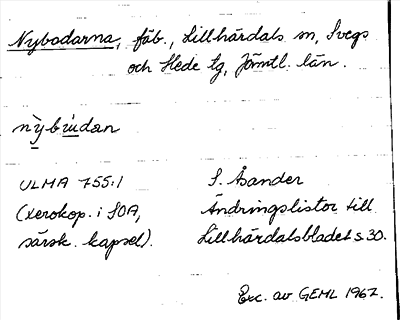 Nybodarna, fäb., Lillhärdals sn, Svegs
och Hede tg, Jämtl. län.
nỳbùdan
ULMA 755:1
(xerokop. i SOA,
särsk. kapsel).
S. Åsander
Ändringslistor till
Lillhärdalsbladet s 30.
Exc. av GEHL 1967.